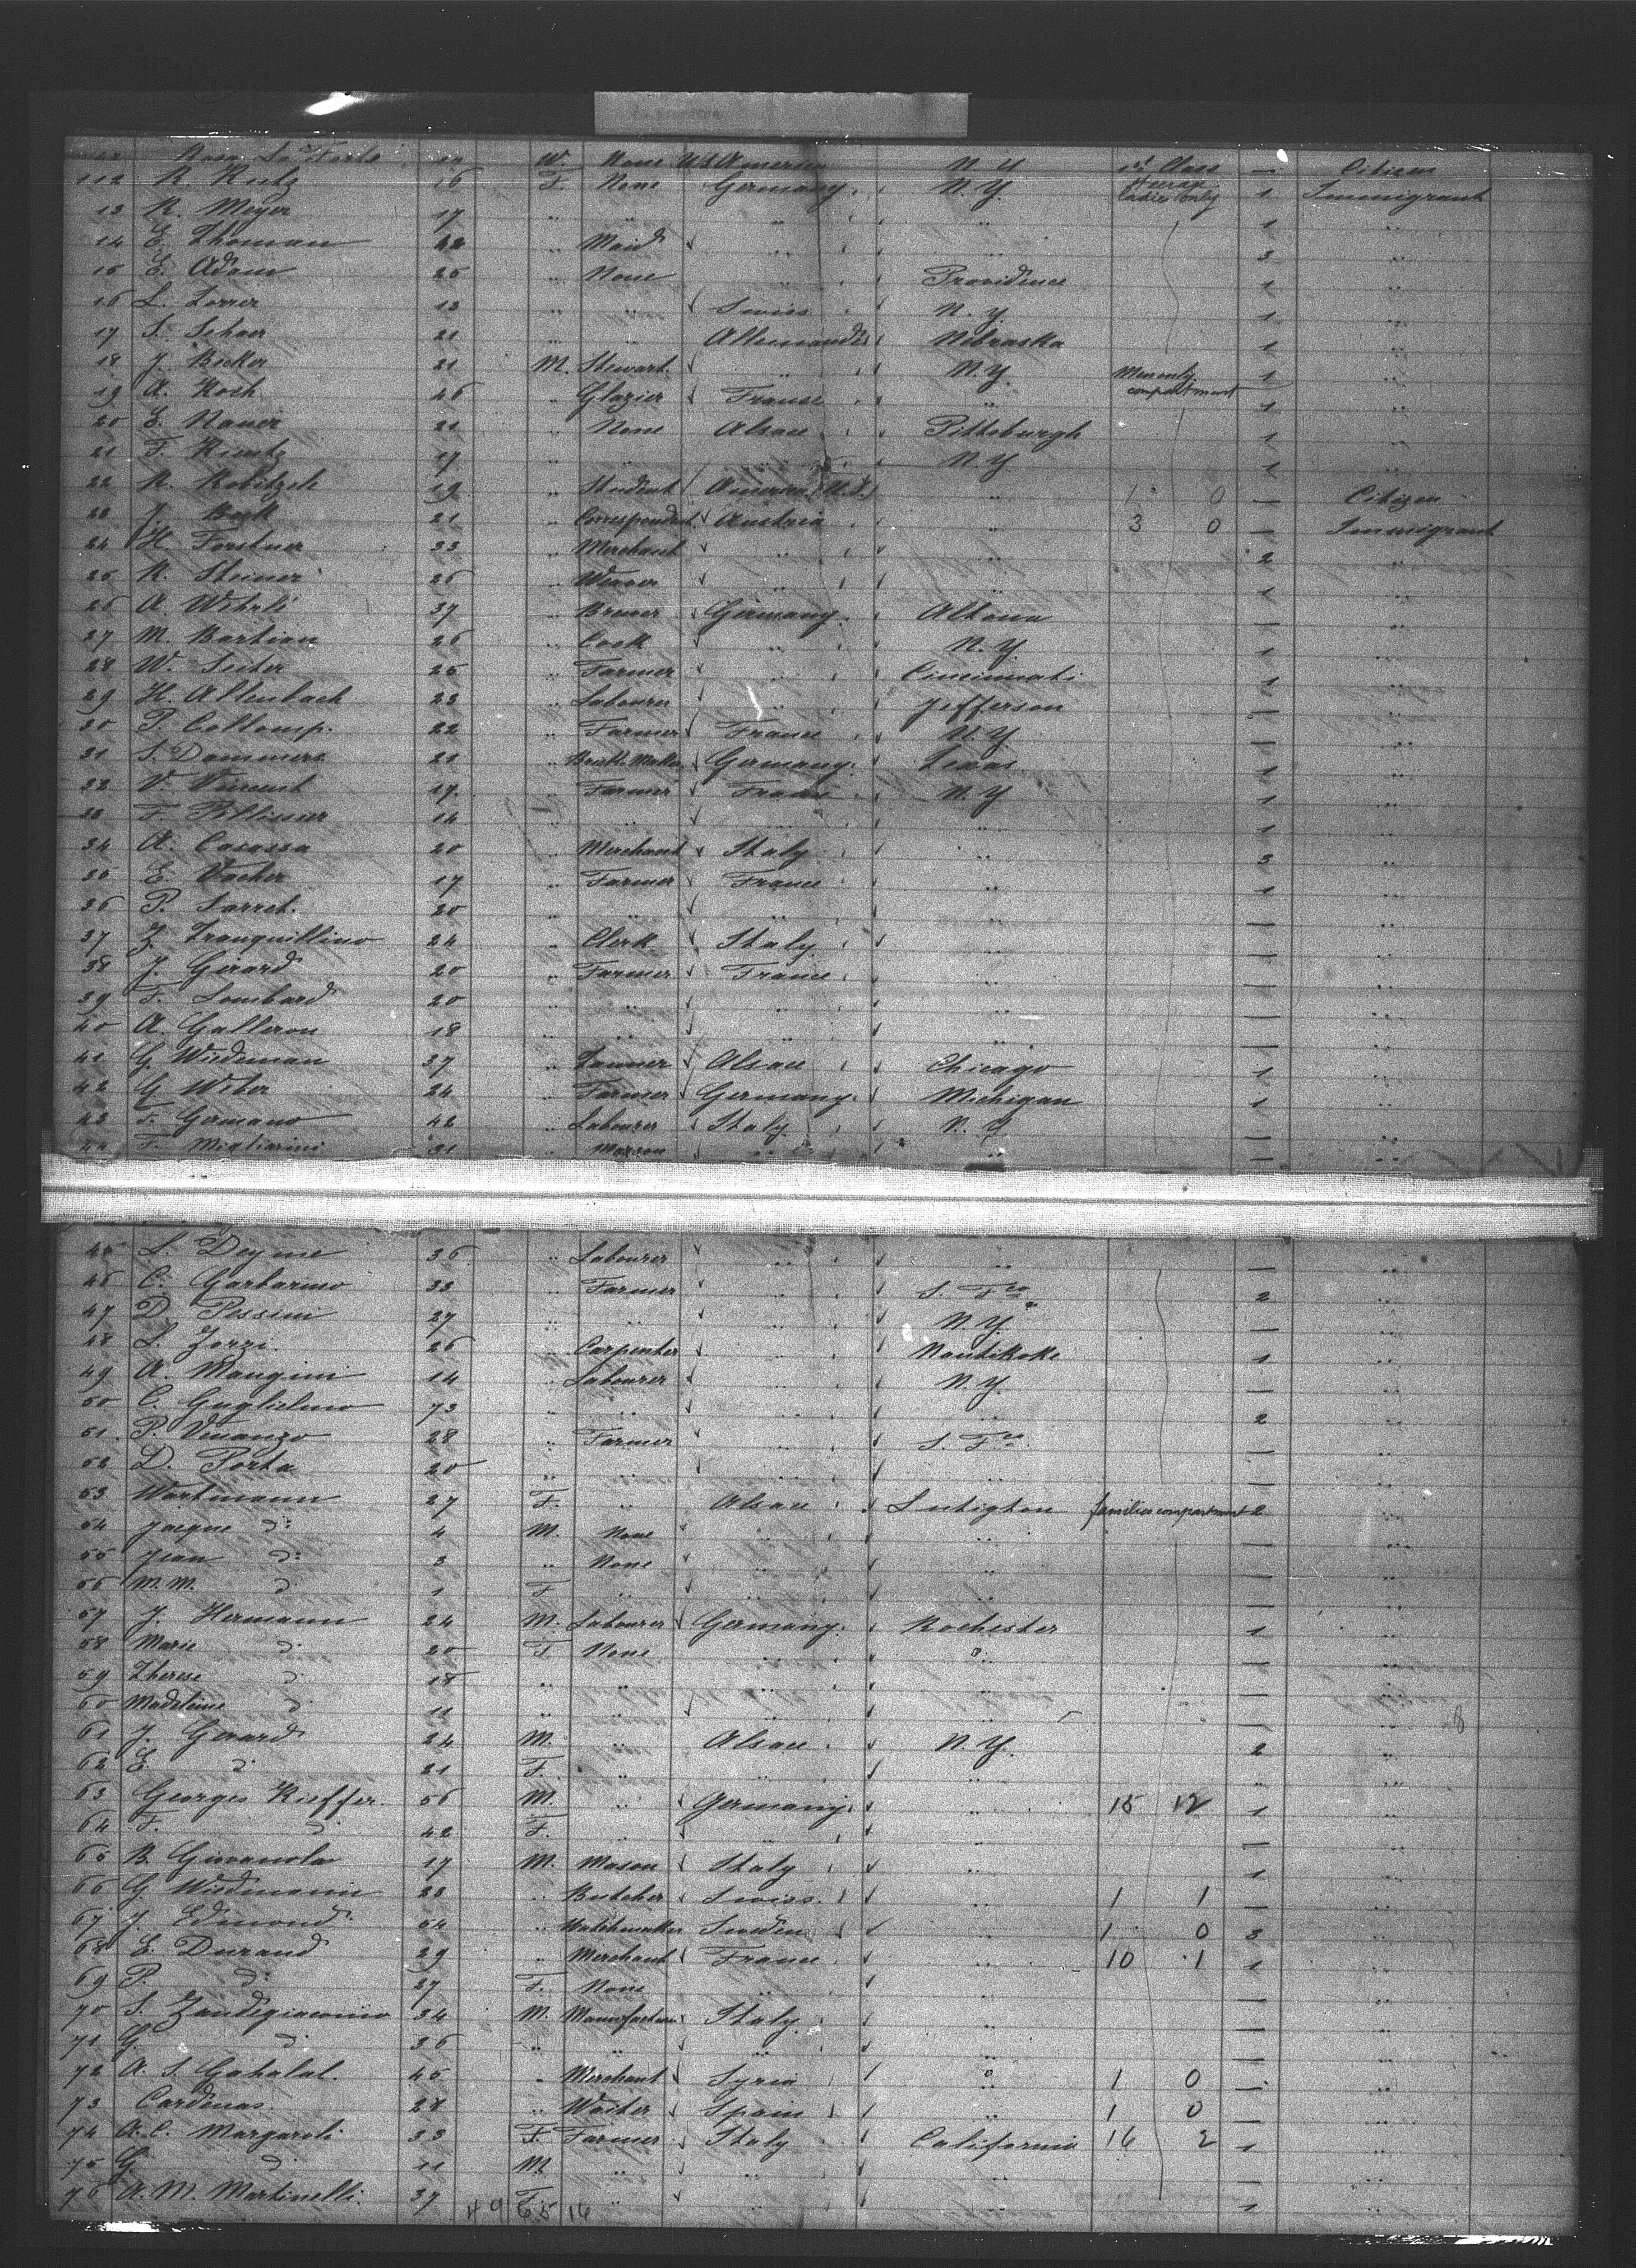 Rosa La Forte W. None U.S America N.Y 1st Class — Citizen
112 R. Kutz 16 F. None Germany. N.Y. Steerage ladies only 1 Immigrant
13 R. Meyer 17 " " " " 1 "
14 E. Thoman 42 " Maid " " 3 "
15 E. Adam 25 " None " Providence 1 "
16 L. Zorrer 13 " " Swiss N.Y. 1 "
17 S. Schaer 21 " " Allemande Nebraska 1 "
18 J. Becker 21 M. Stewart " N.Y. Men only compartment 1 "
19 A. Koch 46 " Glazier France " 1 "
20 E. Nauer 21 " None Alsace Pittsburgh 1 "
21 F. Kuntz 17 " " " N.Y. 1 "
22 R. Robitzek 19 " Student America (U.S.) " 1 0 — Citizen
23 J. Beck 21 " Correspondent Austria " 3 0 — Immigrant
24 H. Forstner 33 " Merchant " " 2 "
25 R. Steiner 26 " Weaver " " 1 "
26 A. Wehrlé 37 " Brewer Germany. Altona — "
27 M. Bastian 26 " Cook " N.Y. 1 "
28 W. Seiter 25 " Farmer " Cincinnati 1 "
29 H. Altenbach 23 " Labourer " Jefferson — "
30 P. Collomp. 22 " Farmer France N.Y — "
31 S. Dammers 21 " Brick Maker Germany. Texas 1 "
32 V. Vincent 17 " Farmer France N.Y 1 "
33 F. Pellissier 14 " " " " 1 "
34 A. Casassa 20 " Merchant Italy " 3 "
35 E. Vacher 17 " Farmer France " 1 "
36 P. Sarret. 20 " " " " — "
37 Z. Tranquillino 24 " Clerk Italy " — "
38 J. Girard 20 " Farmer France " — "
39 F. Lombard 20 " " " " — "
40 A. Galleron 18 " " " " — "
41 G. Wiedeman 37 " Tanner Alsace Chicago 1 "
42 G. Weber 24 " Farmer Germany. Michigan 1 "
43 F. Germano 42 " Labourer Italy N.Y — "
44 F. Migliorini 31 " Mason " " — "
45 L. Deyme 36 " Labourer " " — "
46 C. Garbarino 33 " Farmer " S. Fco 2 "
47 D. Pessini 27 " " " N.Y. — "
48 L. Zozzi. 26 " Carpenter " Nantikoke 1 "
49 A. Mangini 14 " Labourer " N.Y. — "
50 C. Guglielmo 73 " " " " 2 "
51. P. Vinanzo 28 " Farmer " S. Fco — "
52 D. Porta 20 " " " " — "
53 Wortmann 27 F. " Alsace families compartment 2 "
54 Jacque do 4 M. None " " — "
55 Jean do 3 " None " " — "
56 M. M. do 1 F " " " — "
57 J. Hermann 24 M. Labourer Germany. Rochester 1 "
58 Marie do 20 F None " " — "
59 Therese do 18 " " " " — "
60 Madeleine do 11 " " " " — "
61 J. Gerard 24 M. " Alsace N.Y. 2 "
62 E do 21 F. " " " " "
63 Georges Kieffer. 56 M. " Germany " 15 12 1 "
64 F. do 42 F. " " " — "
65 B. Giovanola 17 M. Mason Italy " 1 "
66 G. Wiedmann 23 " Butcher Swiss. " 1 1 — "
67 J. Edmond 54 " Watchmaker Sweden " 1 0 3 "
68 E. Durand 29 " Merchant France " 10 1 1 "
69 P. do 27 F. None " " — "
70 S. Zandigiacomo 34 M. Manufacturer Italy " — "
71 G. do 36 " " " " — "
72 A. S. Gahalal. 45 " Merchant Syria " 1 0 — "
73 Cardenas. 28 " Waiter Spain " 1 0 — "
74 A. C. Margaroli 33 F. Farmer Italy California 16 2 1 "
75 G. do 11 M. " " " — "
76 A. M. Martinelli. 37 F. " " " 1 "
49 65 16